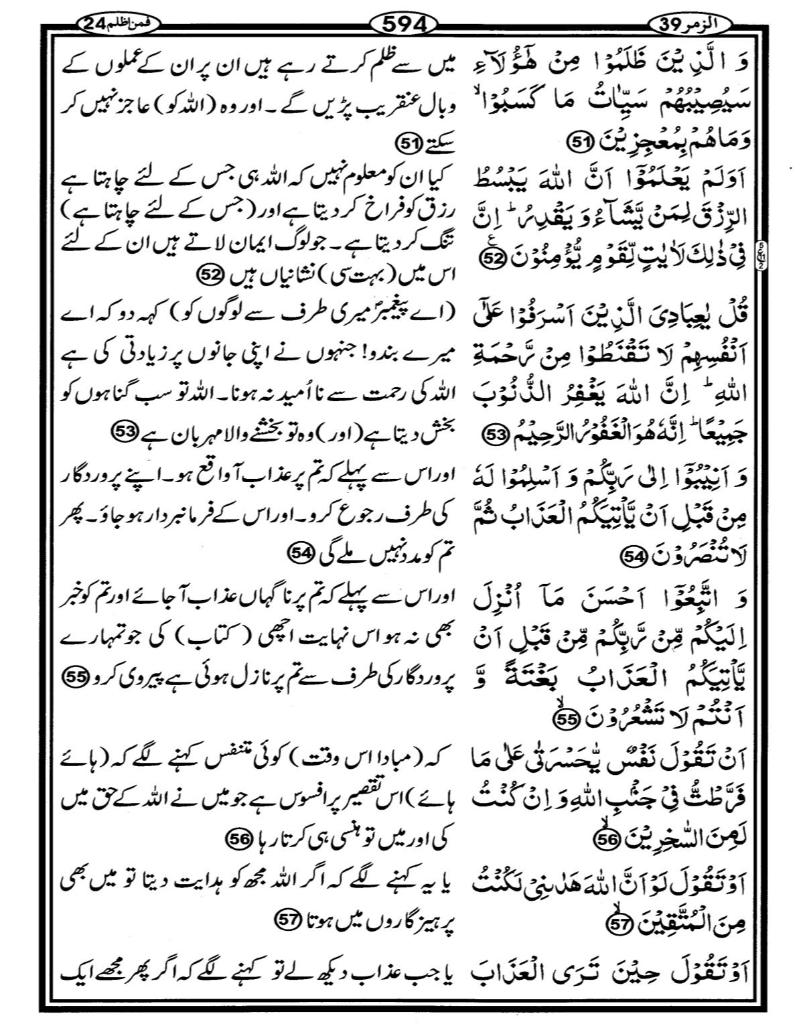 الزمر 39
594
فمن اظلم 24
وَ الَّذِيۡنَ ظَلَمُوۡا مِنۡ هٰٓؤُلَآءِ
سَيُصِيۡبُهُمۡ سَيِّاٰتُ مَا كَسَبُوۡا ۙ
وَمَا هُمۡ بِمُعۡجِزِيۡنَ 51
اَوَلَمۡ يَعۡلَمُوۡۤا اَنَّ اللّٰهَ يَبۡسُطُ
الرِّزۡقَ لِمَنۡ يَّشَآءُ وَ يَقۡدِرُ ؕ اِنَّ
فِىۡ ذٰلِكَ لَاٰيٰتٍ لِّقَوۡمٍ يُّؤۡمِنُوۡنَ ع 52
قُلۡ يٰعِبَادِىَ الَّذِيۡنَ اَسۡرَفُوۡا عَلٰٓى
اَنۡفُسِهِمۡ لَا تَقۡنَطُوۡا مِنۡ رَّحۡمَةِ
اللّٰهِ ؕ اِنَّ اللّٰهَ يَغۡفِرُ الذُّنُوۡبَ
جَمِيۡعًا ؕ اِنَّهٗ هُوَ الۡغَفُوۡرُ الرَّحِيۡمُ 53
وَ اَنِيۡبُوۡۤا اِلٰى رَبِّكُمۡ وَ اَسۡلِمُوۡا لَهٗ
مِنۡ قَبۡلِ اَنۡ يَّاۡتِيَكُمُ الۡعَذَابُ ثُمَّ
لَا تُنۡصَرُوۡنَ 54
وَ اتَّبِعُوۡۤا اَحۡسَنَ مَاۤ اُنۡزِلَ
اِلَيۡكُمۡ مِّنۡ رَّبِّكُمۡ مِّنۡ قَبۡلِ اَنۡ
يَّاۡتِيَكُمُ الۡعَذَابُ بَغۡتَةً وَّ
اَنۡتُمۡ لَا تَشۡعُرُوۡنَ ۙ 55
اَنۡ تَقُوۡلَ نَفۡسٌ يّٰحَسۡرَتٰى عَلٰى مَا
فَرَّطْتُّ فِىۡ جَنۡۢبِ اللّٰهِ وَ اِنۡ كُنۡتُ
لَمِنَ السّٰخِرِيۡنَ ۙ 56
اَوۡ تَقُوۡلَ لَوۡ اَنَّ اللّٰهَ هَدٰٮنِىۡ لَكُنۡتُ
مِنَ الۡمُتَّقِيۡنَ ۙ 57
اَوۡ تَقُوۡلَ حِيۡنَ تَرَى الۡعَذَابَ
میں سے ظلم کرتے رہے ہیں ان پر ان کے عملوں کے
وبال عنقریب پڑیں گے۔ اور وہ (اللہ کو) عاجز نہیں کر
سکتے 51
کیا ان کو معلوم نہیں کہ اللہ ہی جس کے لئے چاہتا ہے
رزق کو فراخ کر دیتا ہے اور (جس کے لئے چاہتا ہے)
تنگ کر دیتا ہے۔ جو لوگ ایمان لاتے ہیں ان کے لئے
اس میں (بہت سی) نشانیاں ہیں 52
(اے پیغمبرؐ میری طرف سے لوگوں کو) کہہ دو کہ اے
میرے بندو! جنہوں نے اپنی جانوں پر زیادتی کی ہے
اللہ کی رحمت سے نا اُمید نہ ہونا۔ اللہ تو سب گناہوں کو
بخش دیتا ہے (اور) وہ تو بخشنے والا مہربان ہے 53
اور اس سے پہلے کہ تم پر عذاب آ واقع ہو۔ اپنے پروردگار
کی طرف رجوع کرو۔ اور اس کے فرمانبردار ہو جاؤ۔ پھر
تم کو مدد نہیں ملے گی 54
اور اس سے پہلے کہ تم پر ناگہاں عذاب آ جائے اور تم کو خبر
بھی نہ ہو اس نہایت اچھی (کتاب) کی جو تمہارے
پروردگار کی طرف سے تم پر نازل ہوئی ہے پیروی کرو 55
کہ (مبادا اس وقت) کوئی متنفس کہنے لگے کہ (ہائے
ہائے) اس تقصیر پر افسوس ہے جو میں نے اللہ کے حق میں
کی اور میں تو ہنسی ہی کرتا رہا 56
یا یہ کہنے لگے کہ اگر اللہ مجھ کو ہدایت دیتا تو میں بھی
پرہیزگاروں میں ہوتا 57
یا جب عذاب دیکھ لے تو کہنے لگے کہ اگر پھر مجھے ایک